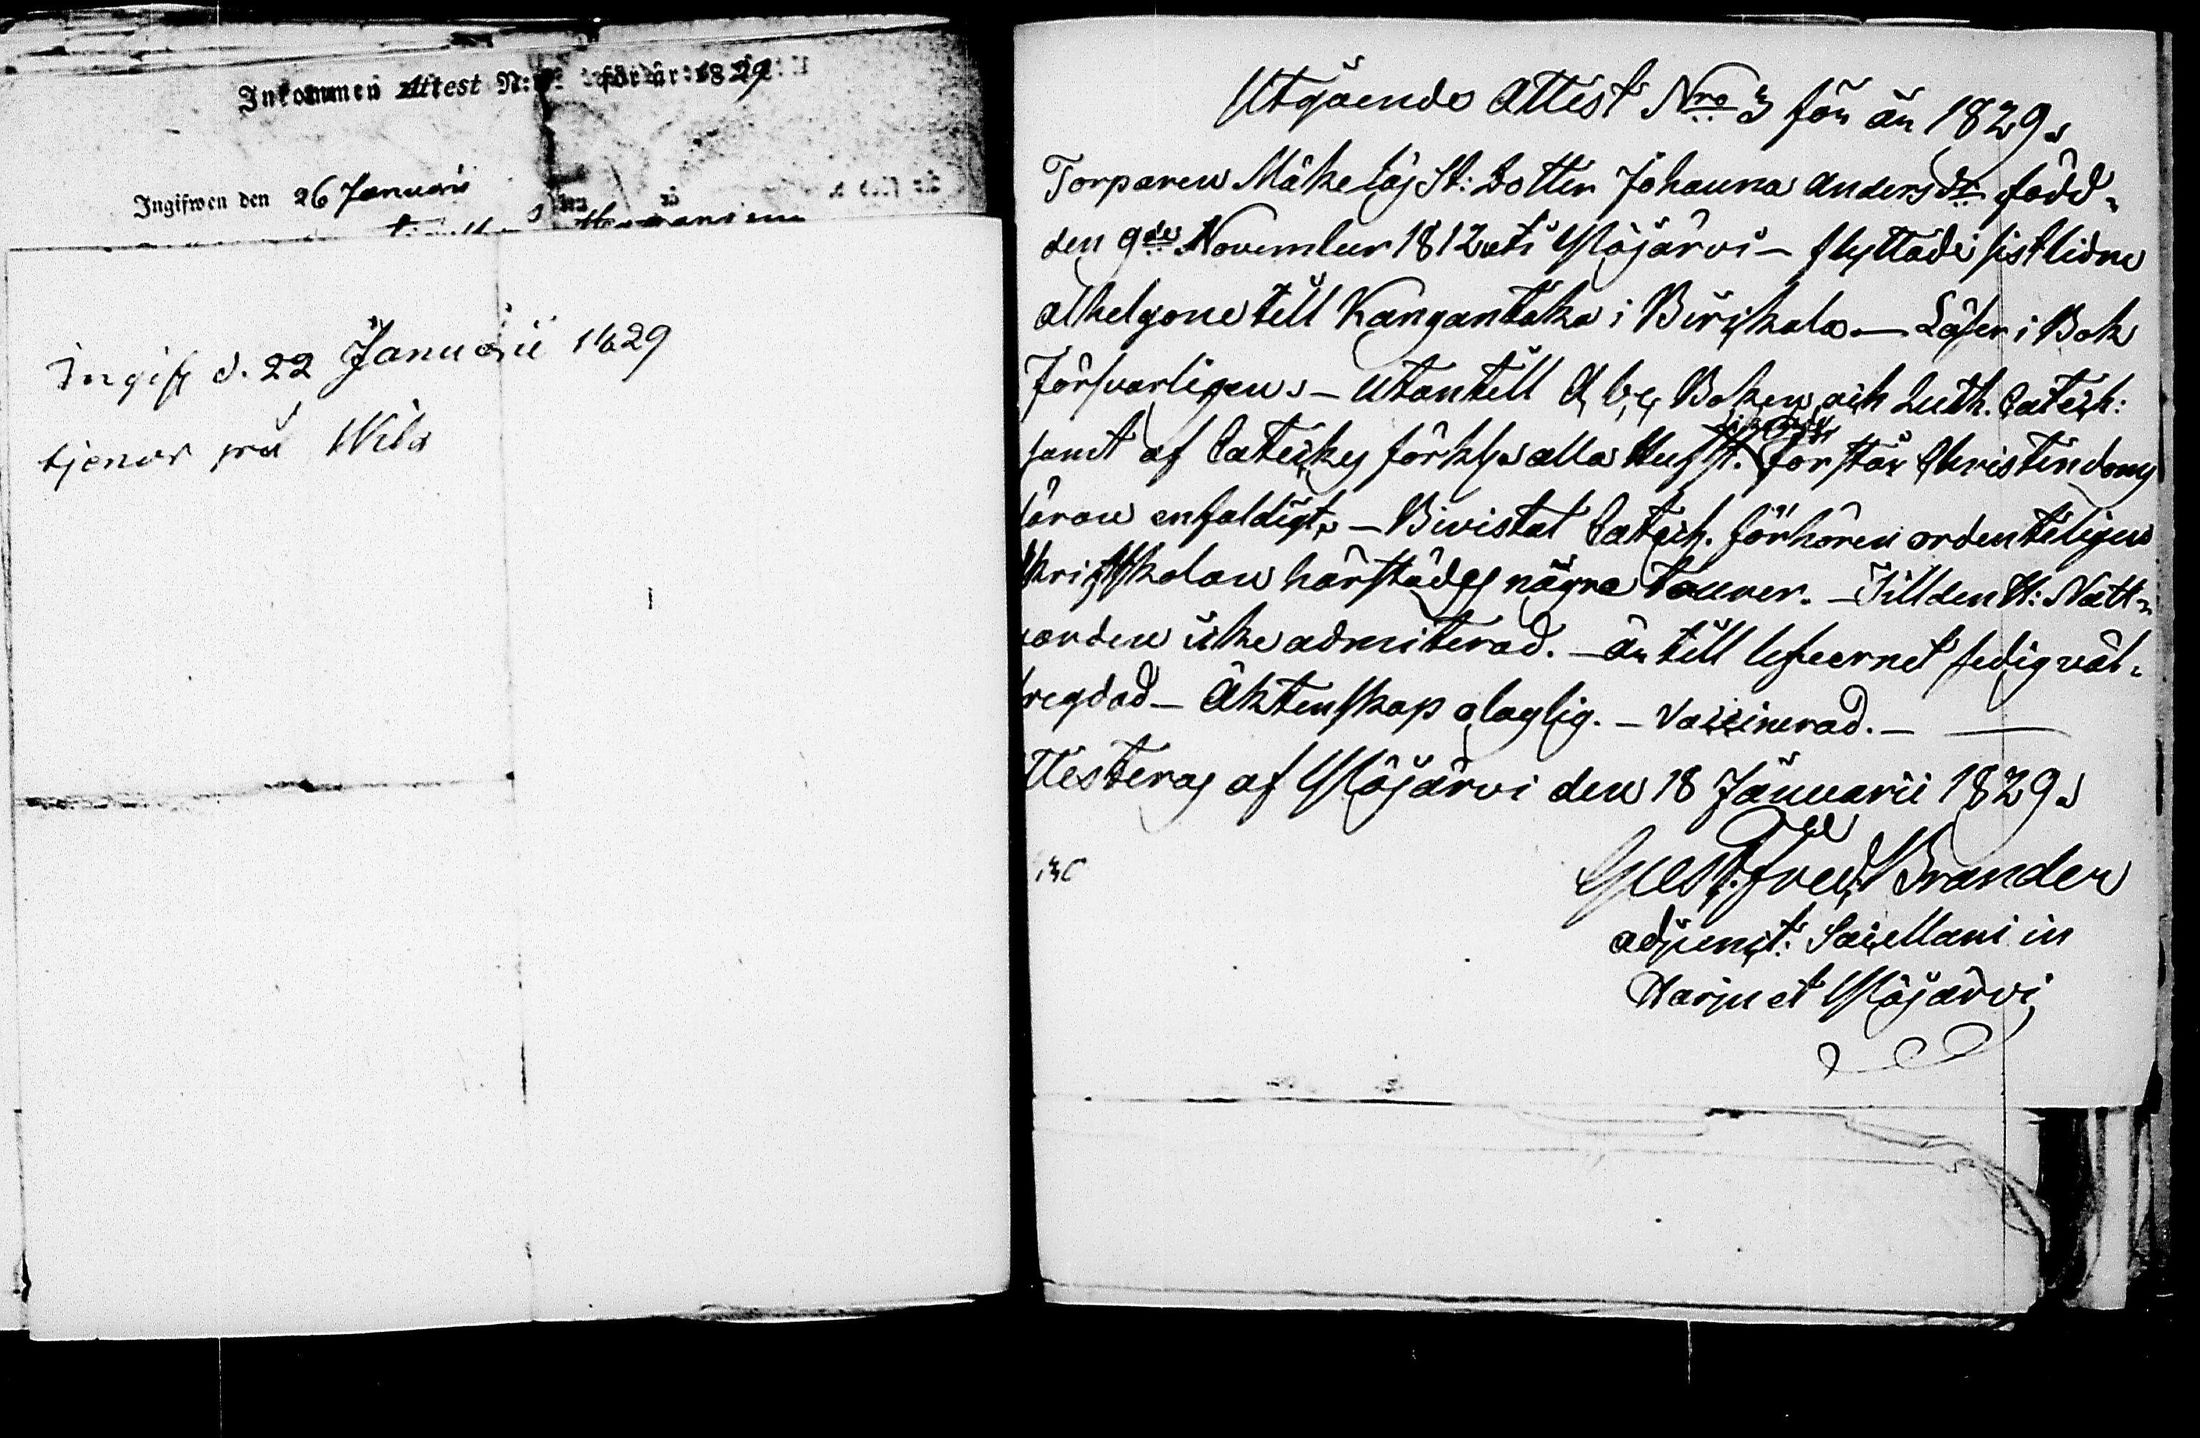 Inkommen Attest N:o för år 1829
Ingifwen den 26 Januarii
Ingif d. 22 Januarii 1829
tjenar på Wila
Utgående Attest Nro 3 för år 1829.
Torparen Mäkeläs St: Dotter Johanna Andersdr född
den 9de November 1812 uti Ylöjärvi – flyttade sistlidne
alhelgone till Kangantaka i Birckala – Läser i Bok
försvarligen. – Utantill A, b, c, Boken och Luth. Catech:
samt af Cateches förkl. alla Hufst. förstår Christendoms
läran enfaldigt. – Bivistat Catech. förhören ordenteligen
Skriftskolan härstädes några Tourer. – Till den H: Natt-
varden icke admitterad. – är till lefvernet sedig väl-
fregdad – Äktenskap olaglig. – Vaccinerad. –
ttesteras af Ylöjärvi den 18 Januarii 1829.
Gust. Fred. Brander
adjunct: Sacellani in
Harju et Ylöjärvi